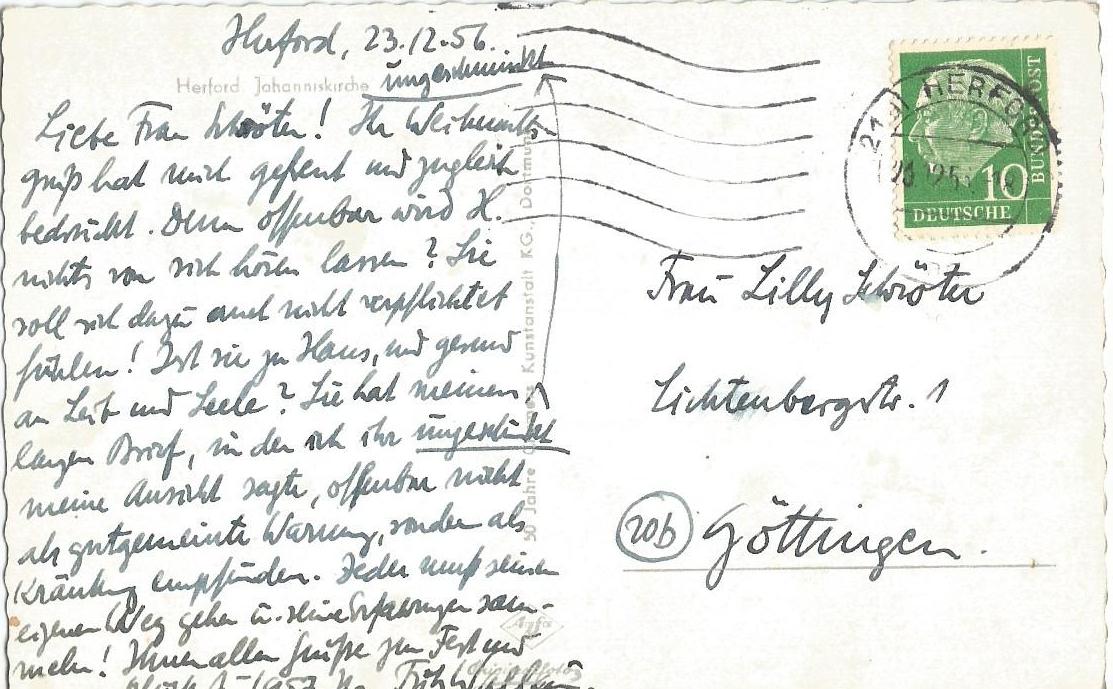 Herford, 23.12.56.
ungeschminkt
Herford Johanniskirche
Liebe Frau Schröter! Ihr Weihnachts-
gruß hat mich gefreut und zugleich
bedrückt. Denn offenbar wird H.
nichts von sich hören lassen? Sie
soll sich dazu auch nicht verpflichtet
fühlen! Ist sie zu Haus, und gesund
an Leib und Seele? Sie hat meinen
langen Brief, in dem ich ihr
meine Ansicht sagte, offenbar nicht
als gutgemeinte Warnung, sondern als
Kränkung empfunden. Jeder muß seinen
eigenen Weg gehen u. seine Erfahrungen sam-
meln! Ihnen allen Grüße zum Fest und
1957
50 Jahre Kunstanstalt KG., Dortmund
Agfa
HERFORD
10
DEUTSCHE
BUNDESPOST
Frau Lilly Schröter
Lichtenbergstr. 1
20b Göttingen.